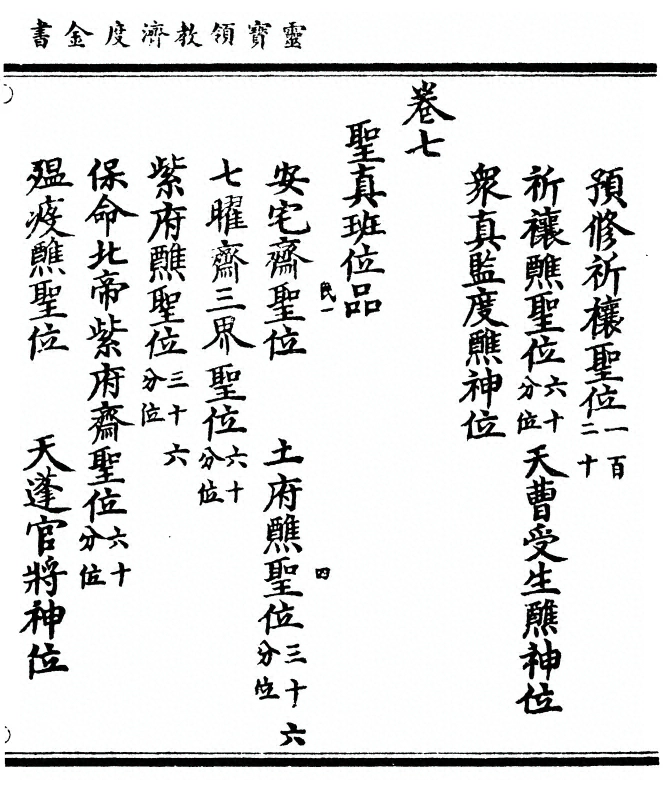 靈寶領教濟度金書
預修祈禳聖位一百二十
祈禳醮聖位六十分位 天曹受生醮神位
衆真監度醮神位
卷七
聖真班位品
民一
安宅齋聖位 土府醮聖位三十六分位
四
七曜齋三界聖位六十分位
紫府醮聖位三十六分位
保命北帝紫府齋聖位六十分位
瘟疫醮聖位 天蓬官將神位